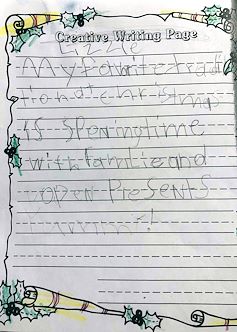 Creative Writing Page
Lizzie
My favorite trad
tion at christmas
is speningtime
with familie and
open Presents